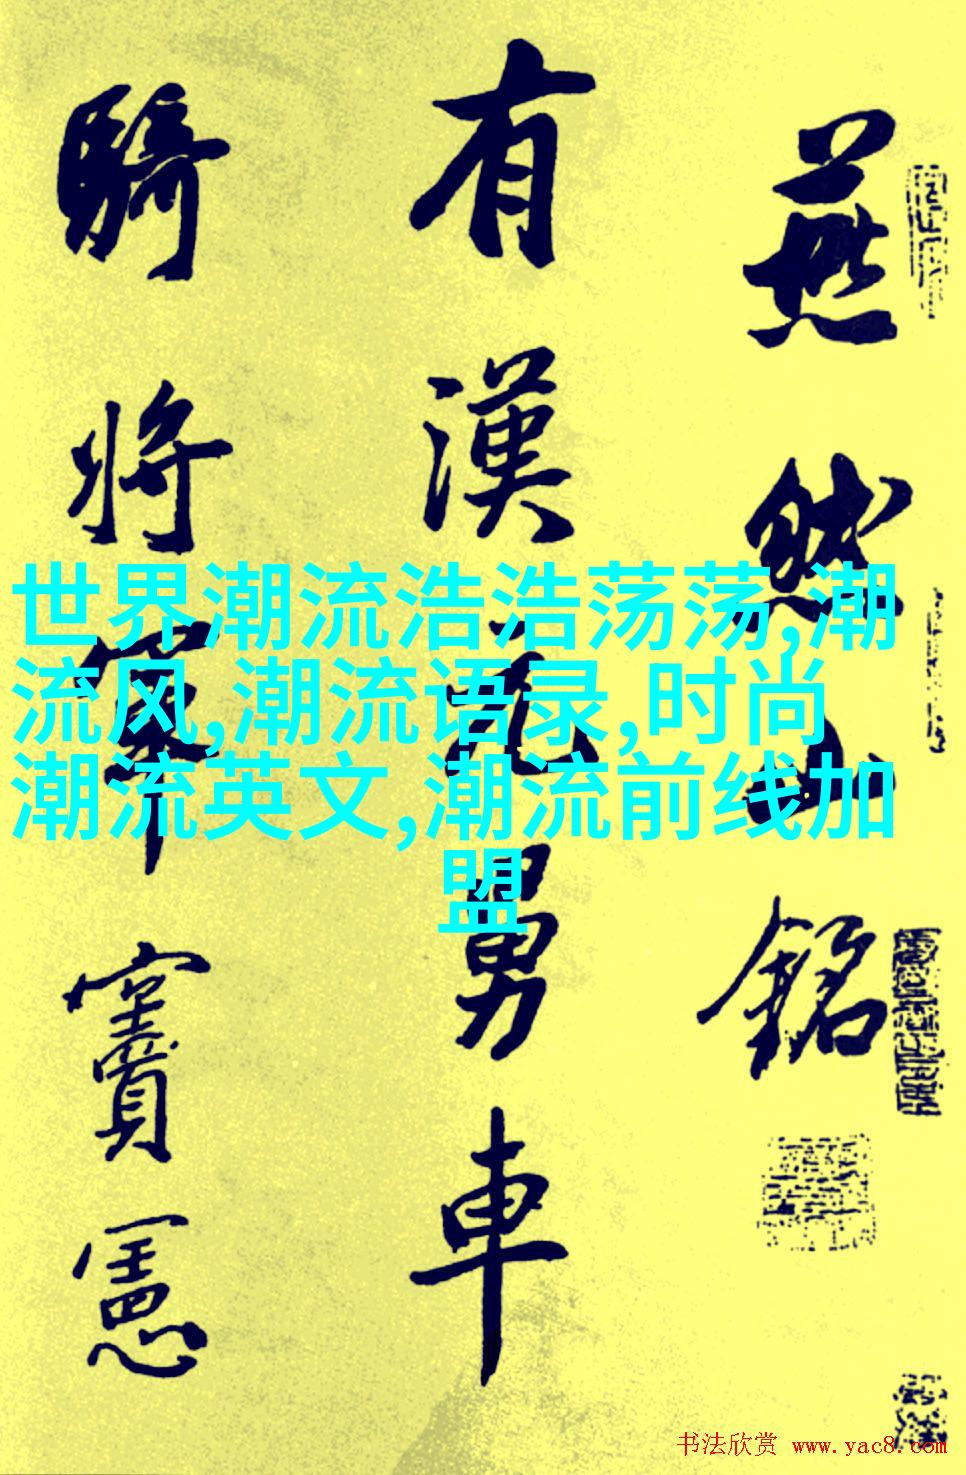 燕然山銘
有漢元舅車
騎將軍竇憲
世界潮流浩浩荡荡,潮
流风,潮流语录,时尚
潮流英文,潮流前线加
盟
书法欣赏 www.yac8.com